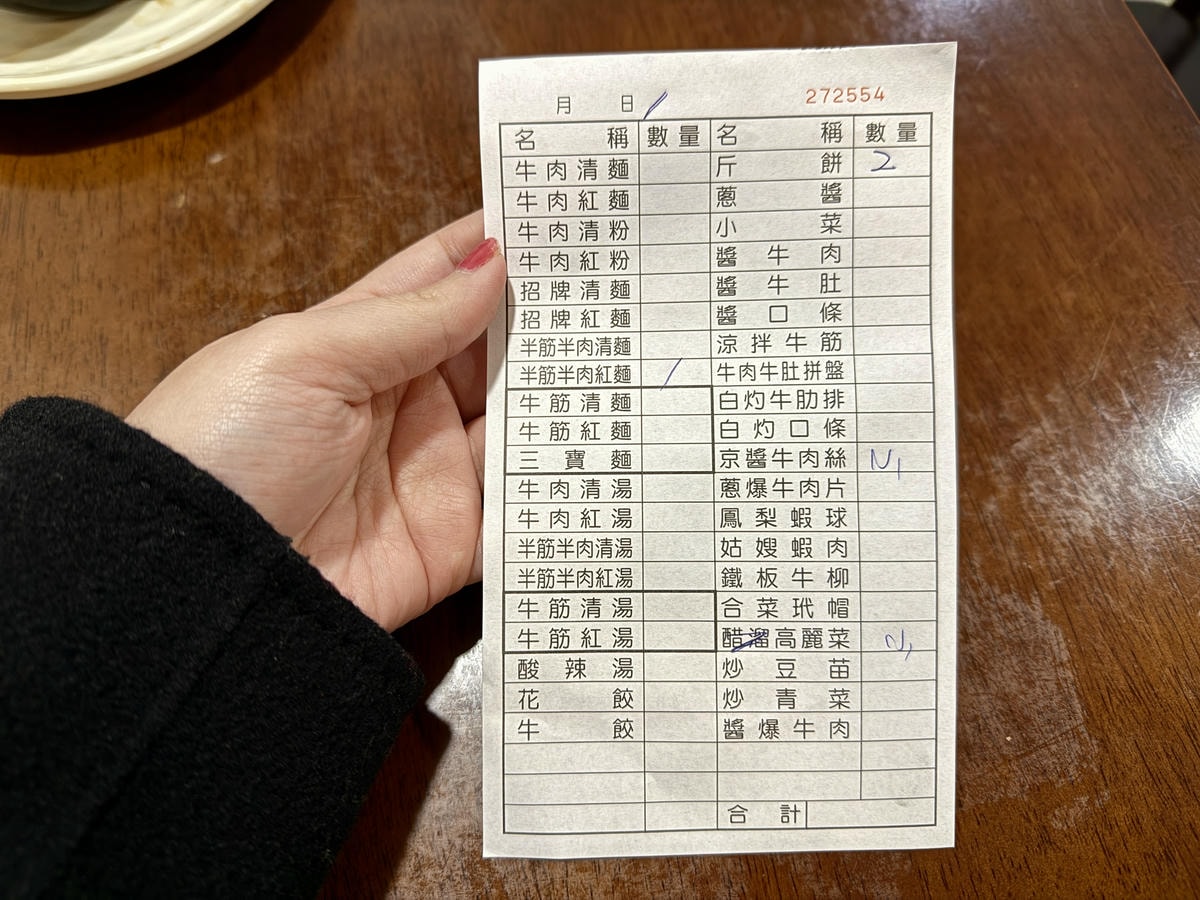 月 日 /
272554
名稱 數量 名稱 數量
牛肉清麵 斤餅 2
牛肉紅麵 蔥醬
牛肉清粉 小菜
牛肉紅粉 醬牛肉
招牌清麵 醬牛肚
招牌紅麵 醬口條
半筋半肉清麵 涼拌牛筋
半筋半肉紅麵 / 牛肉牛肚拼盤
牛筋清麵 白灼牛肋排
牛筋紅麵 白灼口條
三寶麵 京醬牛肉絲
牛肉清湯 蔥爆牛肉片
牛肉紅湯 鳳梨蝦球
半筋半肉清湯 姑嫂蝦肉
半筋半肉紅湯 鐵板牛柳
牛筋清湯 合菜玳帽
牛筋紅湯 醋溜高麗菜
酸辣湯 炒豆苗
花餃 炒青菜
牛餃 醬爆牛肉
合計